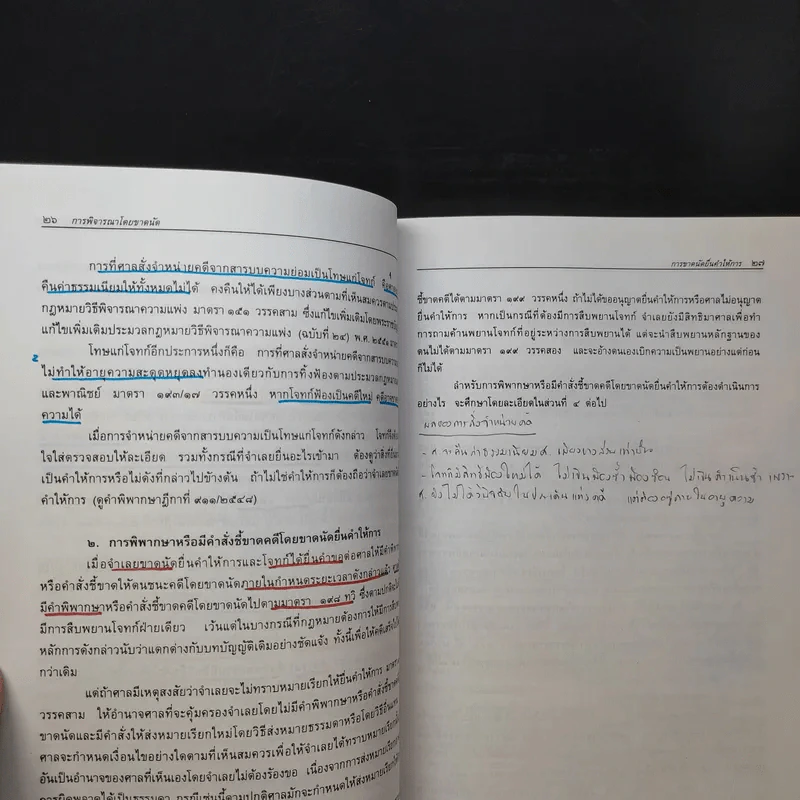 ๒๖ การพิจารณาโดยขาดนัด
การที่ศาลสั่งจำหน่ายคดีจากสารบบความย่อมเป็นโทษแก่โจทก์
คืนค่าธรรมเนียมให้ทั้งหมดไม่ได้ คงคืนให้ได้เพียงบางส่วนตามที่เห็นสมควรตาม
กฎหมายวิธีพิจารณาความแพ่ง มาตรา ๑๕๑ วรรคสาม ซึ่งแก้ไขเพิ่มเติมโดย
แก้ไขเพิ่มเติมประมวลกฎหมายวิธีพิจารณาความแพ่ง (ฉบับที่ ๒๔) พ.ศ. ๒๕๕๑
โทษแก่โจทก์อีกประการหนึ่งก็คือ การที่ศาลสั่งจำหน่ายคดีจากสารบบ
ไม่ทำให้อายุความสะดุดหยุดลงทำนองเดียวกับการทิ้งฟ้องตามประมวลกฎหมาย
และพาณิชย์ มาตรา ๑๙๓/๑๗ วรรคหนึ่ง หากโจทก์ฟ้องเป็นคดีใหม่
ความได้
เมื่อการจำหน่ายคดีจากสารบบความเป็นโทษแก่โจทก์ดังกล่าว
ใจใส่ตรวจสอบให้ละเอียด รวมทั้งกรณีที่จำเลยยื่นอะไรเข้ามา ต้องดูว่าสิ่งที่
เป็นคำให้การหรือไม่ดังที่กล่าวไปข้างต้น ถ้าไม่ใช่คำให้การก็ต้องถือว่าจำเลย
คำให้การ (ดูคำพิพากษาฎีกาที่ ๙๑๑/๒๕๔๘)
๒. การพิพากษาหรือมีคำสั่งชี้ขาดคดีโดยขาดนัดยื่นคำให้การ
เมื่อจำเลยขาดนัดยื่นคำให้การและโจทก์ได้ยื่นคำขอต่อศาลให้มีคำ
หรือคำสั่งชี้ขาดให้ตนชนะคดีโดยขาดนัดภายในกำหนดระยะเวลาดังกล่าวแล้ว
มีคำพิพากษาหรือคำสั่งชี้ขาดคดีโดยขาดนัดไปตามมาตรา ๑๙๘ ทวิ ซึ่งตาม
มีการสืบพยานโจทก์ฝ่ายเดียว เว้นแต่ในบางกรณีที่กฎหมายต้องการให้มีการ
หลักการดังกล่าวนับว่าแตกต่างกับบทบัญญัติเดิมอย่างชัดแจ้ง ทั้งนี้เพื่อให้คดี
กว่าเดิม
แต่ถ้าศาลมีเหตุสงสัยว่าจำเลยจะไม่ทราบหมายเรียกให้ยื่นคำให้การ
วรรคสาม ให้อำนาจศาลที่จะคุ้มครองจำเลยโดยไม่มีคำพิพากษาหรือคำสั่งชี้ขาด
ขาดนัดและมีคำสั่งให้ส่งหมายเรียกใหม่โดยวิธีส่งหมายธรรมดาหรือโดยวิธีอื่น
ศาลจะกำหนดเงื่อนไขอย่างใดตามที่เห็นสมควรเพื่อให้จำเลยได้ทราบหมายเรียก
อันเป็นอำนาจของศาลที่เห็นเองโดยจำเลยไม่ต้องร้องขอ เนื่องจากการส่งหมายเรียก
การผิดพลาดได้เป็นธรรมดา กรณีเช่นนี้ตามปกติศาลมักจะกำหนดให้ส่งหมายเรียก
การขาดนัดยื่นคำให้การ ๒๗
ชี้ขาดคดีได้ตามมาตรา ๑๙๙ วรรคหนึ่ง ถ้าไม่ได้ขออนุญาตยื่นคำให้การหรือศาลไม่อนุญาต
ยื่นคำให้การ หากเป็นกรณีที่ต้องมีการสืบพยานโจทก์ จำเลยยังมีสิทธิมาศาลเพื่อทำ
การถามค้านพยานโจทก์ที่อยู่ระหว่างการสืบพยานได้ แต่จะนำสืบพยานหลักฐานของ
ตนไม่ได้ตามมาตรา ๑๙๙ วรรคสอง และจะอ้างตนเองเบิกความเป็นพยานอย่างแต่ก่อน
ก็ไม่ได้
สำหรับการพิพากษาหรือมีคำสั่งชี้ขาดคดีโดยขาดนัดยื่นคำให้การต้องดำเนินการ
อย่างไร จะศึกษาโดยละเอียดในส่วนที่ ๔ ต่อไป
ผลของการสั่งจำหน่ายคดี
- ศาลคืนค่าธรรมเนียมศ. เพียงบางส่วนเท่านั้น
- โจทก์มีสิทธิฟ้องใหม่ได้ ไม่เป็นฟ้องซ้ำ ฟ้องซ้อน ไม่เป็นดำเนินซ้ำ เพราะ
ศ. ยังไม่ได้วินิจฉัยในประเด็นแห่งคดี แต่ต้องอยู่ภายในอายุความ